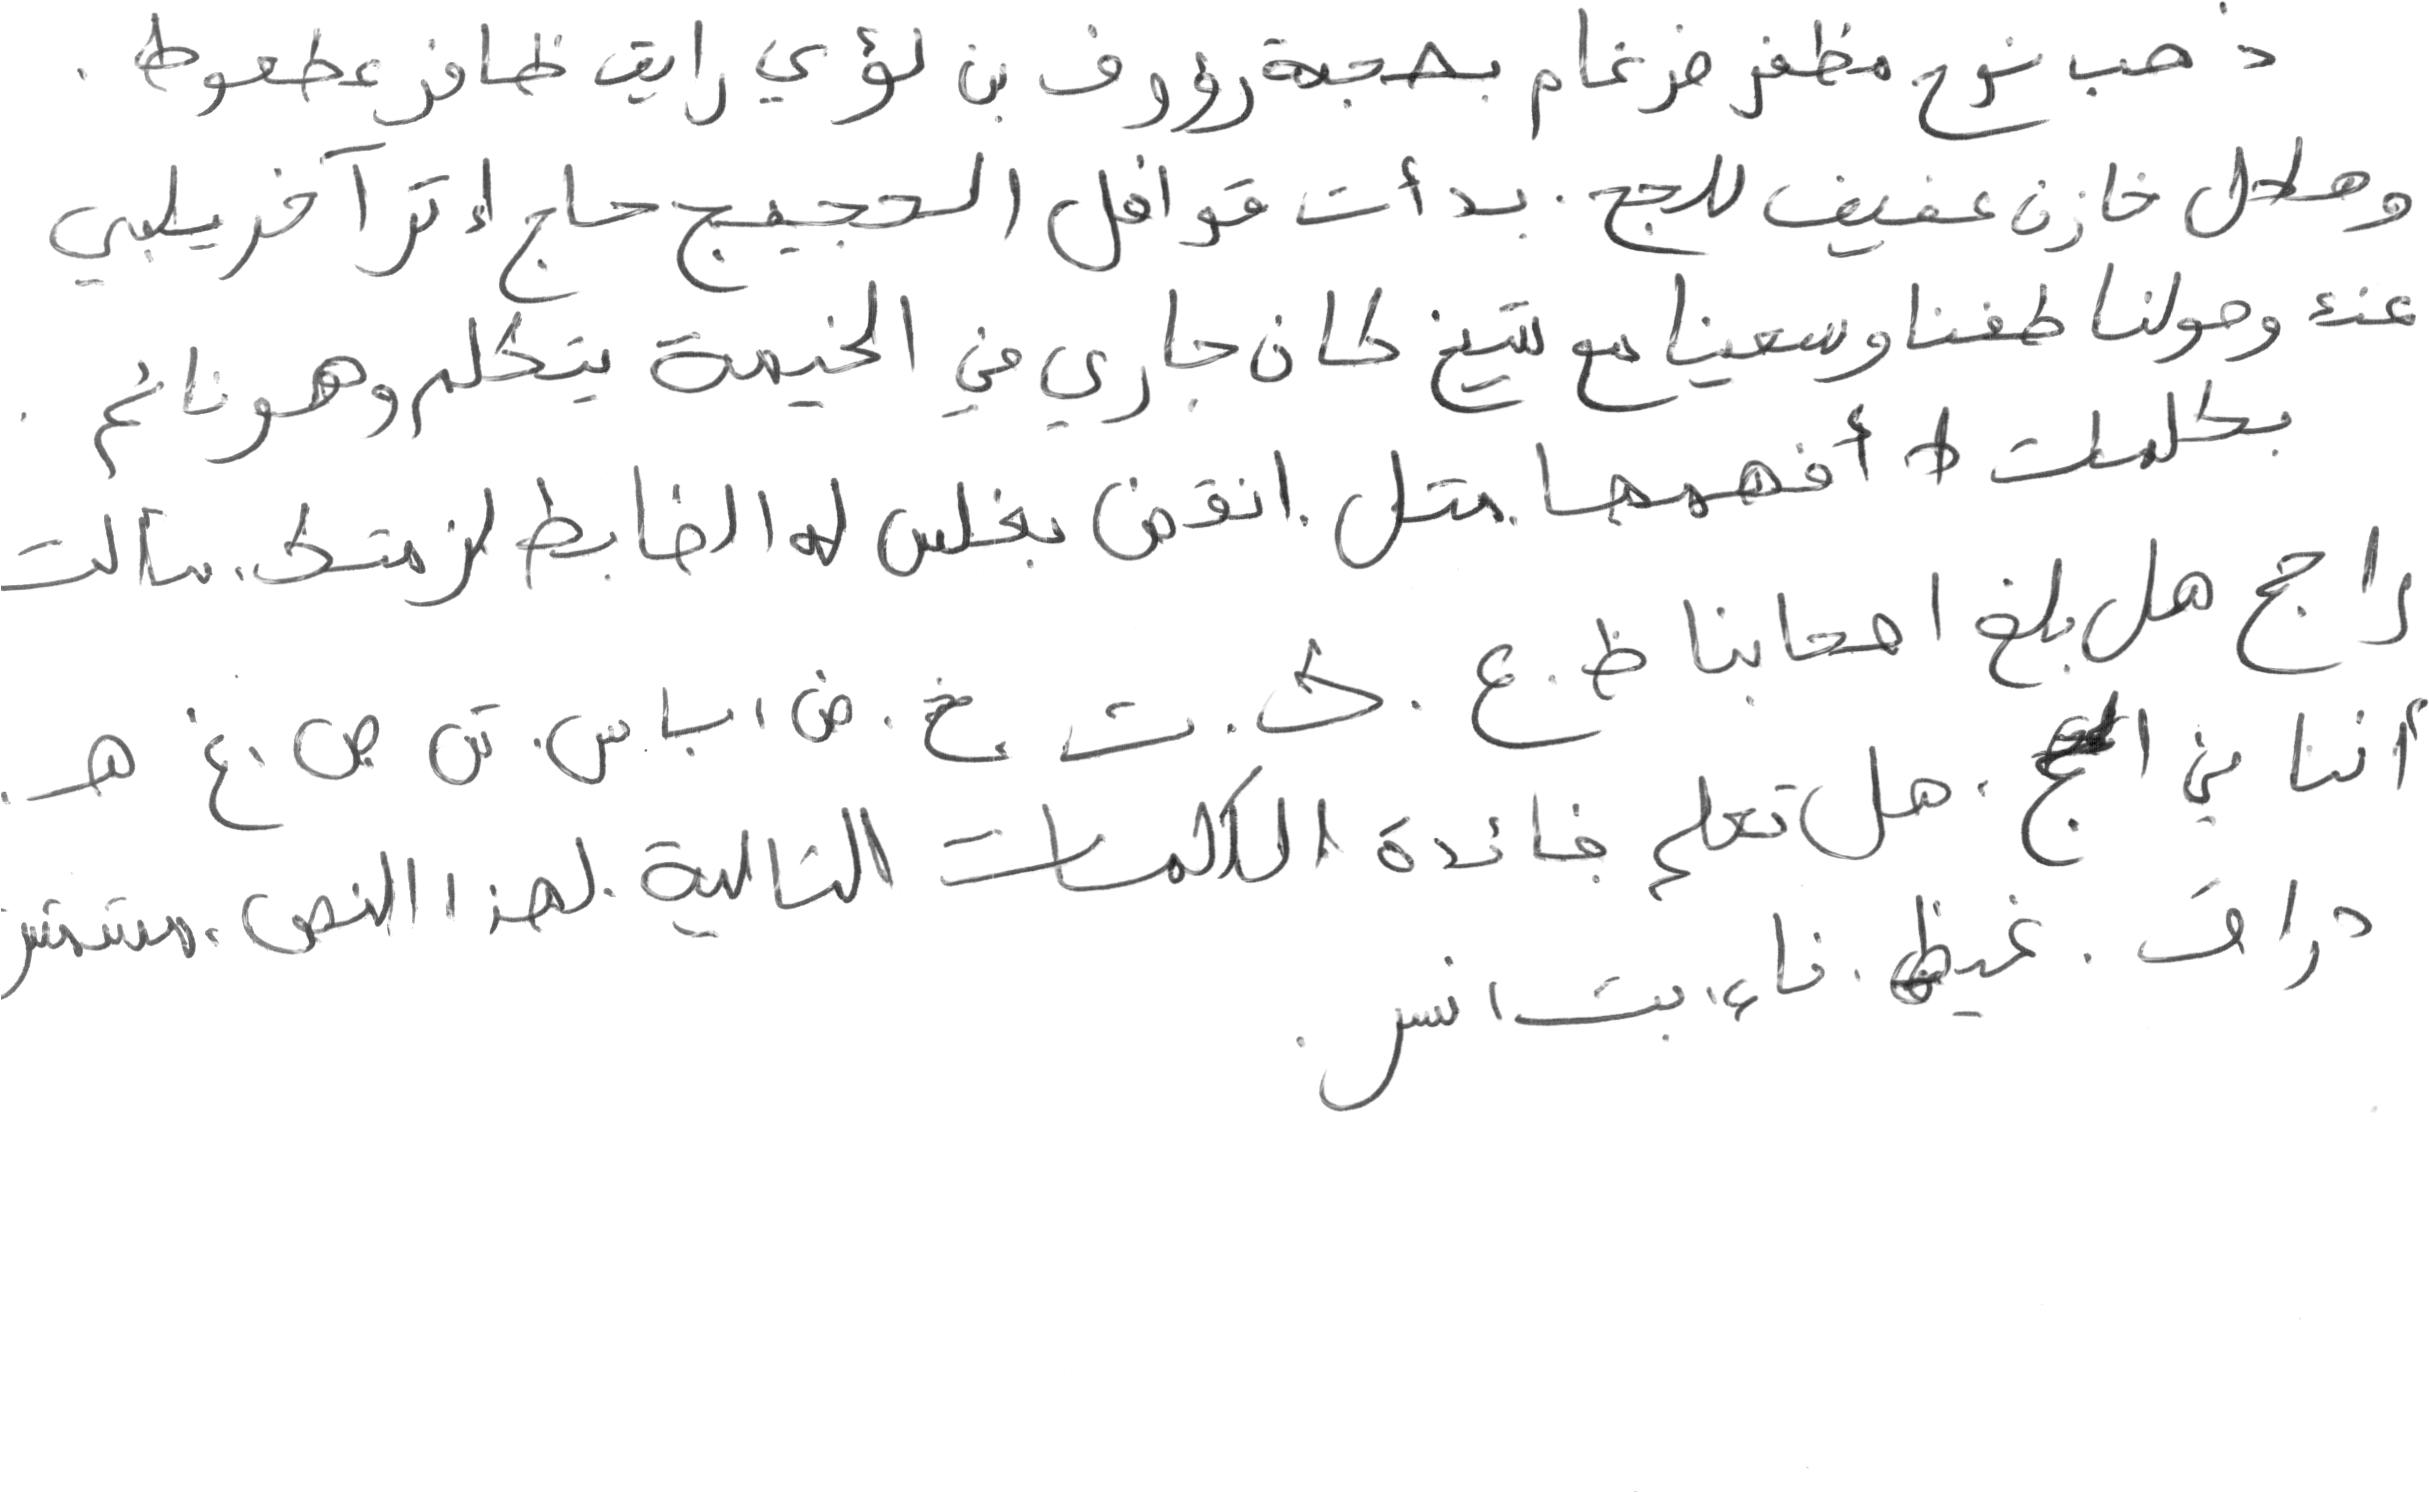 ذهب نوح مظفر ضرغام بصحبة رؤوف بن لؤي رايق ظافر عطعوط .
وهلال خازن عفيف للحج . بدأت قوافل الحجيج حاج إثر آخر يلبي
عند وصولنا طفنا وسعينا مع شيخ كان جاري في الخيمة يتكلم وهو نائم .
بكلمات لا أفهمها . مثل . انقض بغلس له الضابط لز متك . سألت
راجح هل بلغ اصحابنا ظ . ع . ك . ث خ . ض اب ا س . ش ص . غ هـ .
أننا في الحج . هل تعلم فائدة الكلمات التالية . لهذا النص . مشمئز
دراق . غيظ . ناء بت انس .